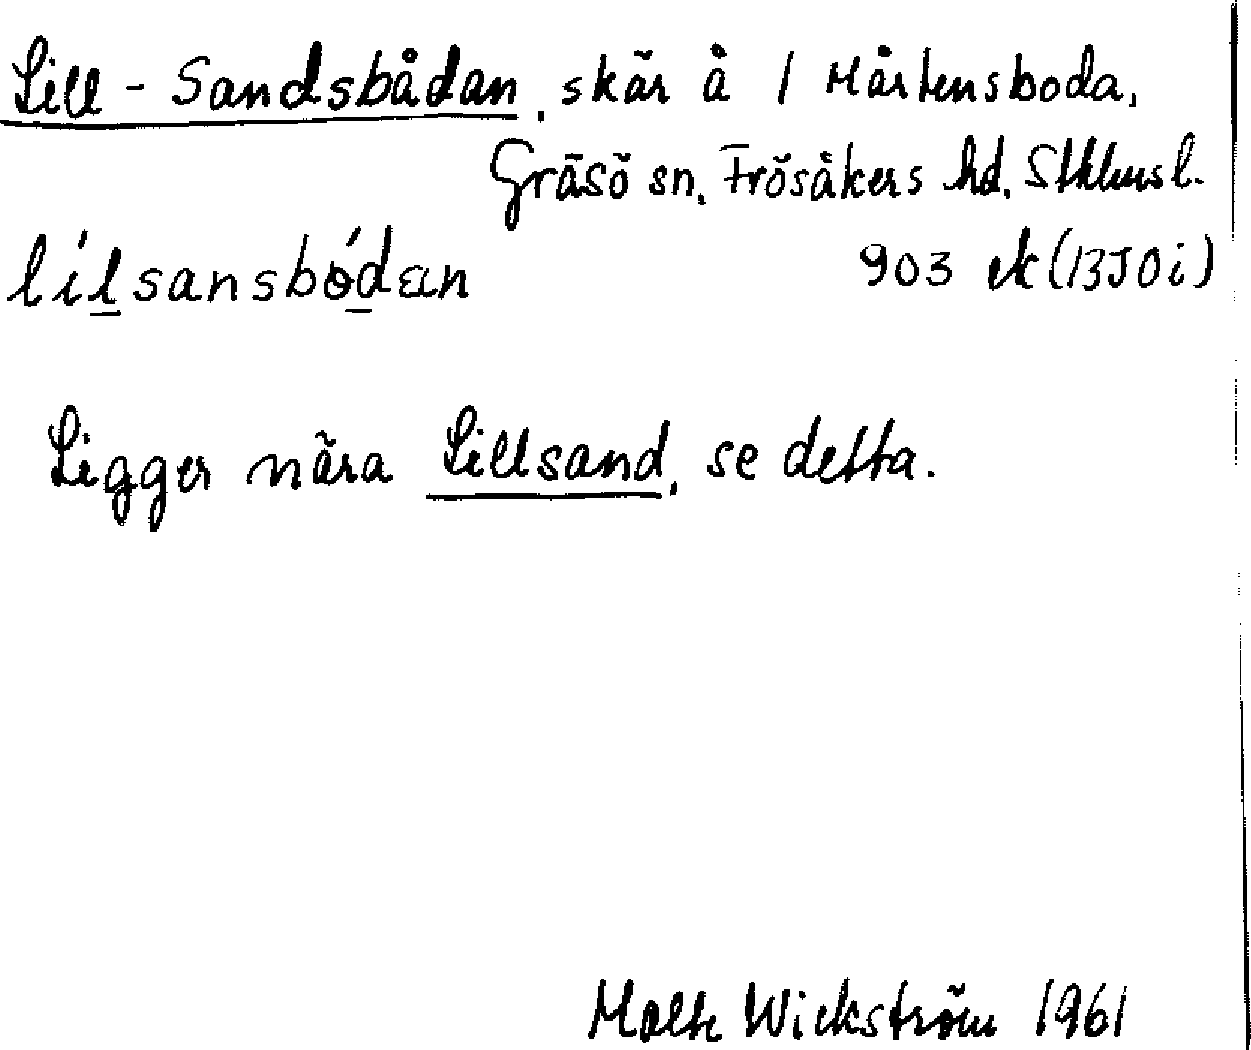 Lill-Sandsbådan, skär å / Mårtensboda,
Gräsö sn, Frösåkers hd, Sthlms l.
lílsansbódan 903 ek (13J0i)
Ligger nära Lillsand, se detta.
Malte Wickström 1961